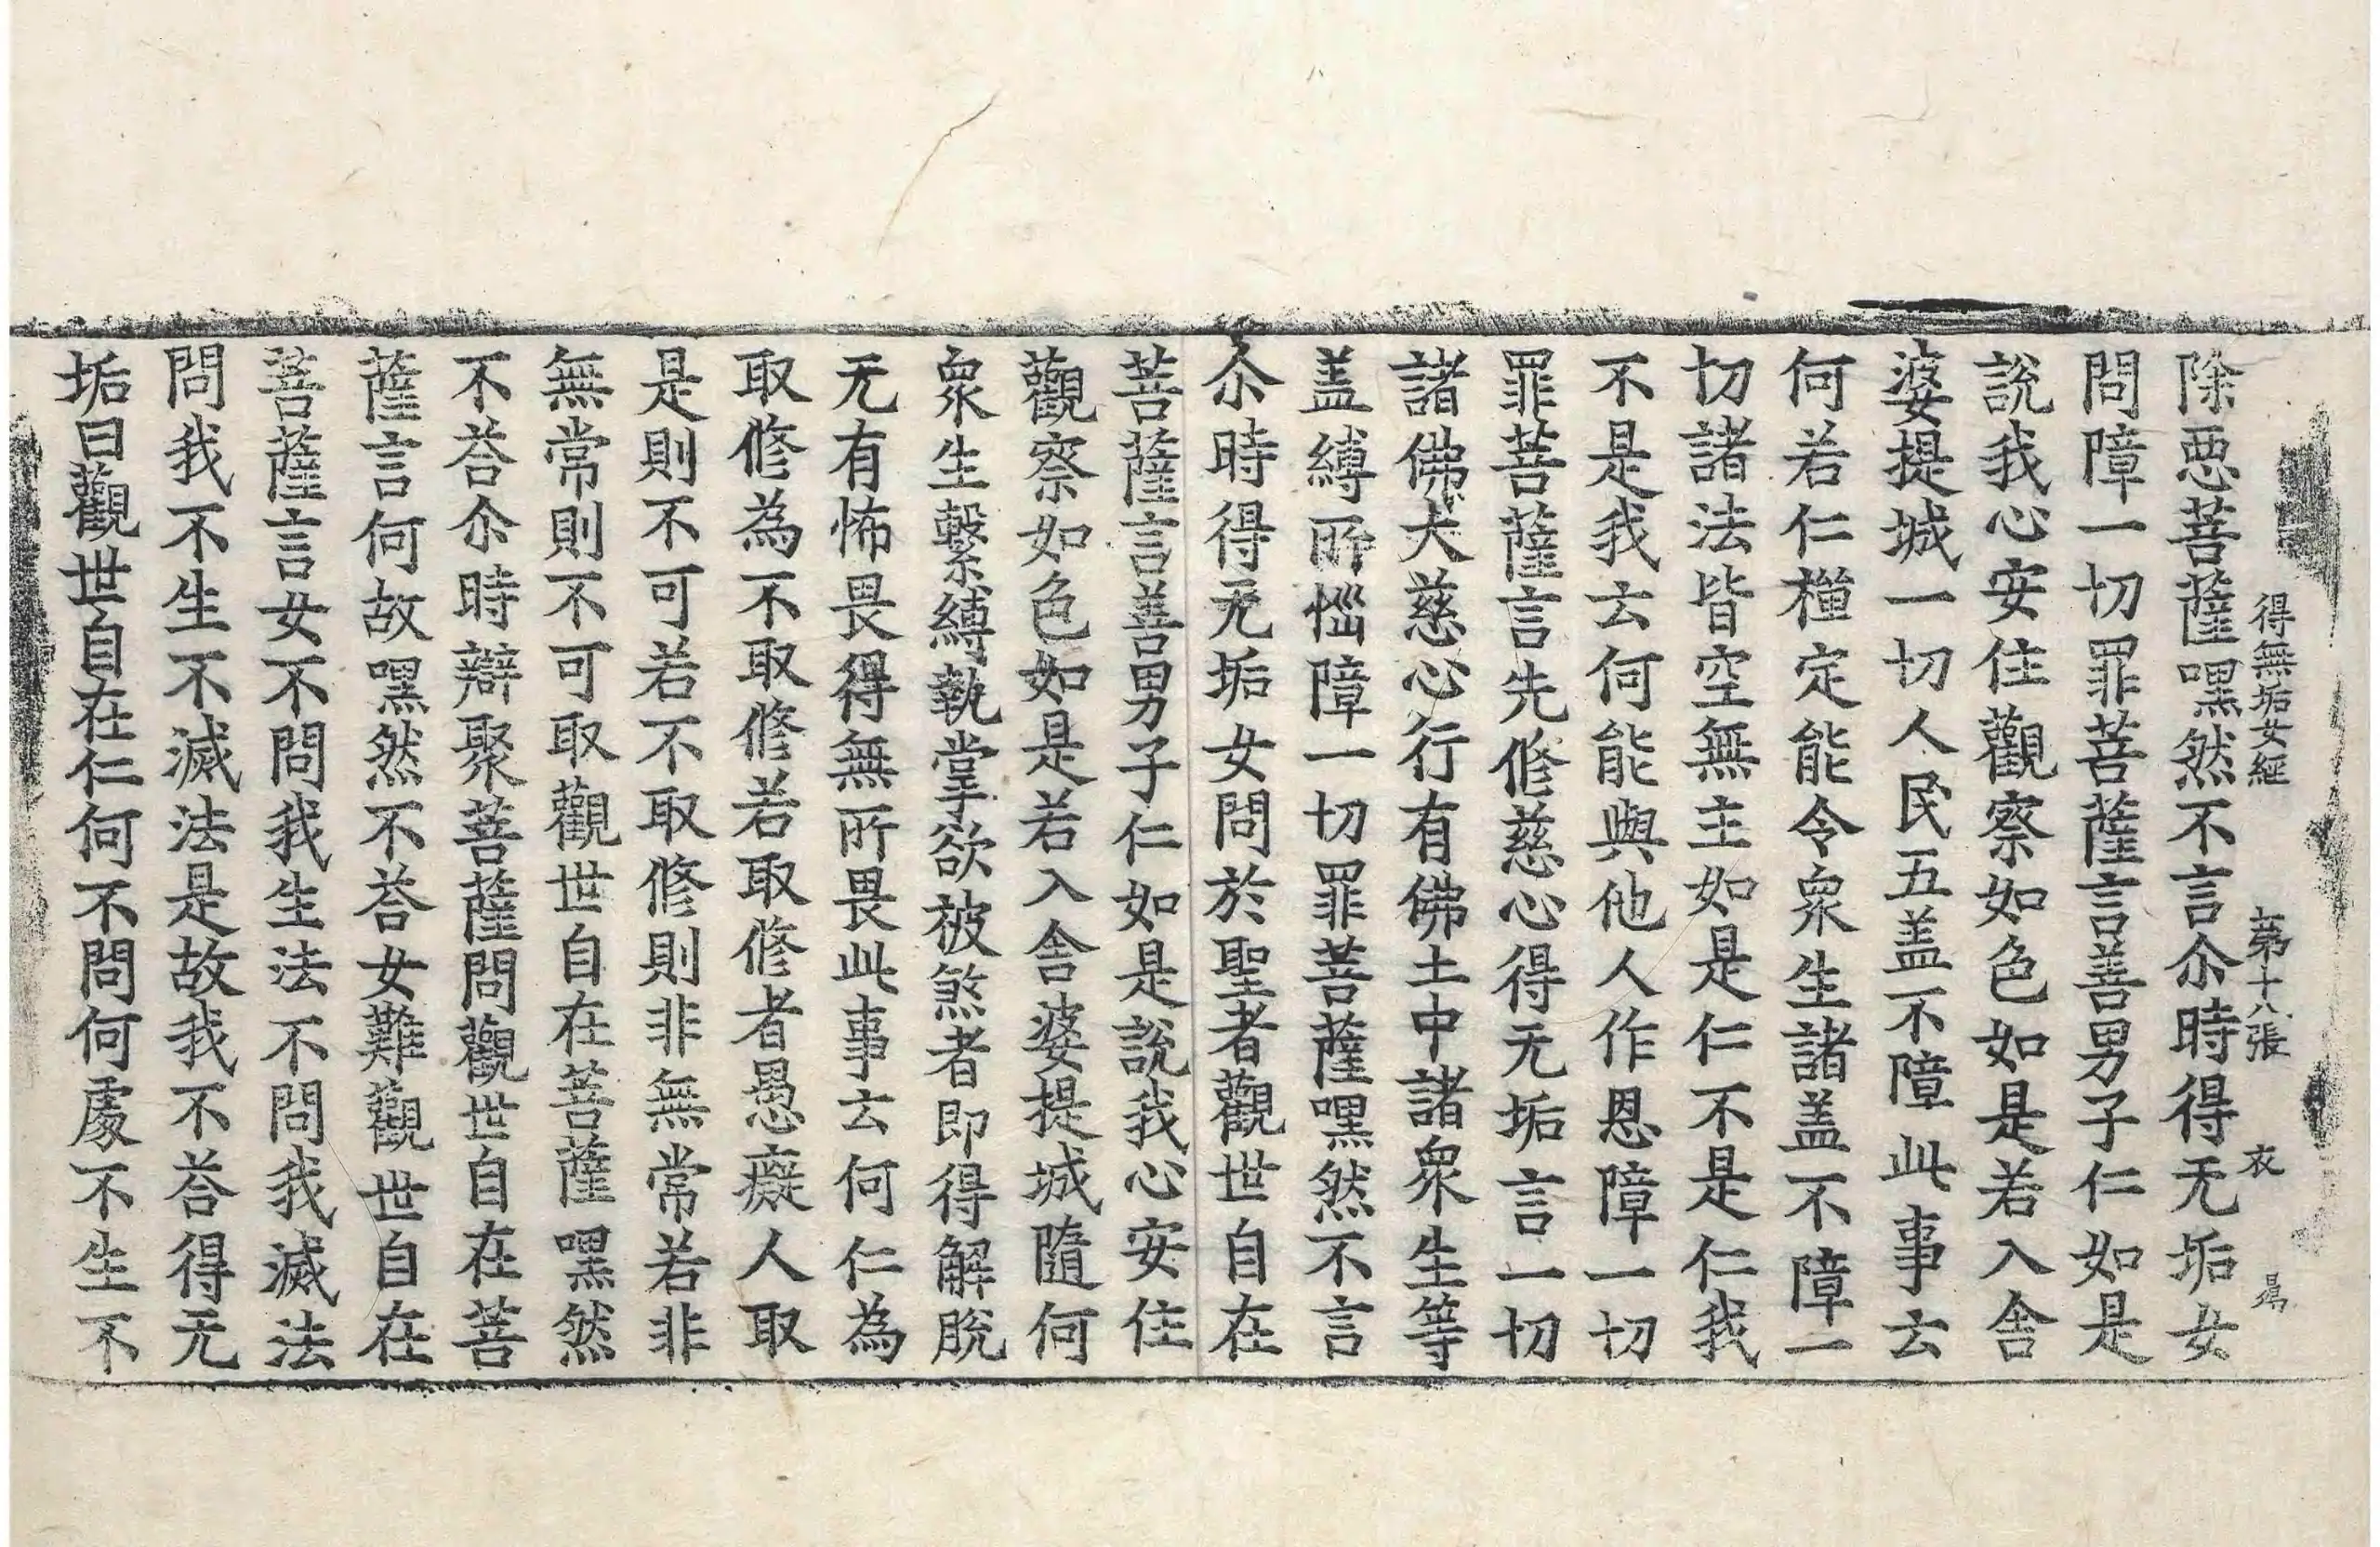 得無垢女經 第十八張 衣
除惡菩薩嘿然不言尒時得无垢女
問障一切罪菩薩言善男子仁如是
說我心安住觀察如色如是若入舍
婆提城一切人民五盖不障此事云
何若仁禪定能令衆生諸盖不障一
切諸法皆空無主如是仁不是仁我
不是我云何能與他人作恩障一切
罪菩薩言先俢慈心得无垢言一切
諸佛大慈心行有佛土中諸衆生等
盖縛所惱障一切罪菩薩嘿然不言
尒時得无垢女問於聖者觀世自在
菩薩言善男子仁如是說我心安住
觀察如色如是若入舍婆提城隨何
衆生繫縛執掌欲被煞者即得解脫
无有怖畏得無所畏此事云何仁為
取俢為不取俢若取俢者愚癡人取
是則不可若不取俢則非無常若非
無常則不可取觀世自在菩薩嘿然
不荅尒時辯聚菩薩問觀世自在菩
薩言何故嘿然不荅女難觀世自在
菩薩言女不問我生法不問我滅法
問我不生不滅法是故我不荅得无
垢曰觀世自在仁何不問何處不生不